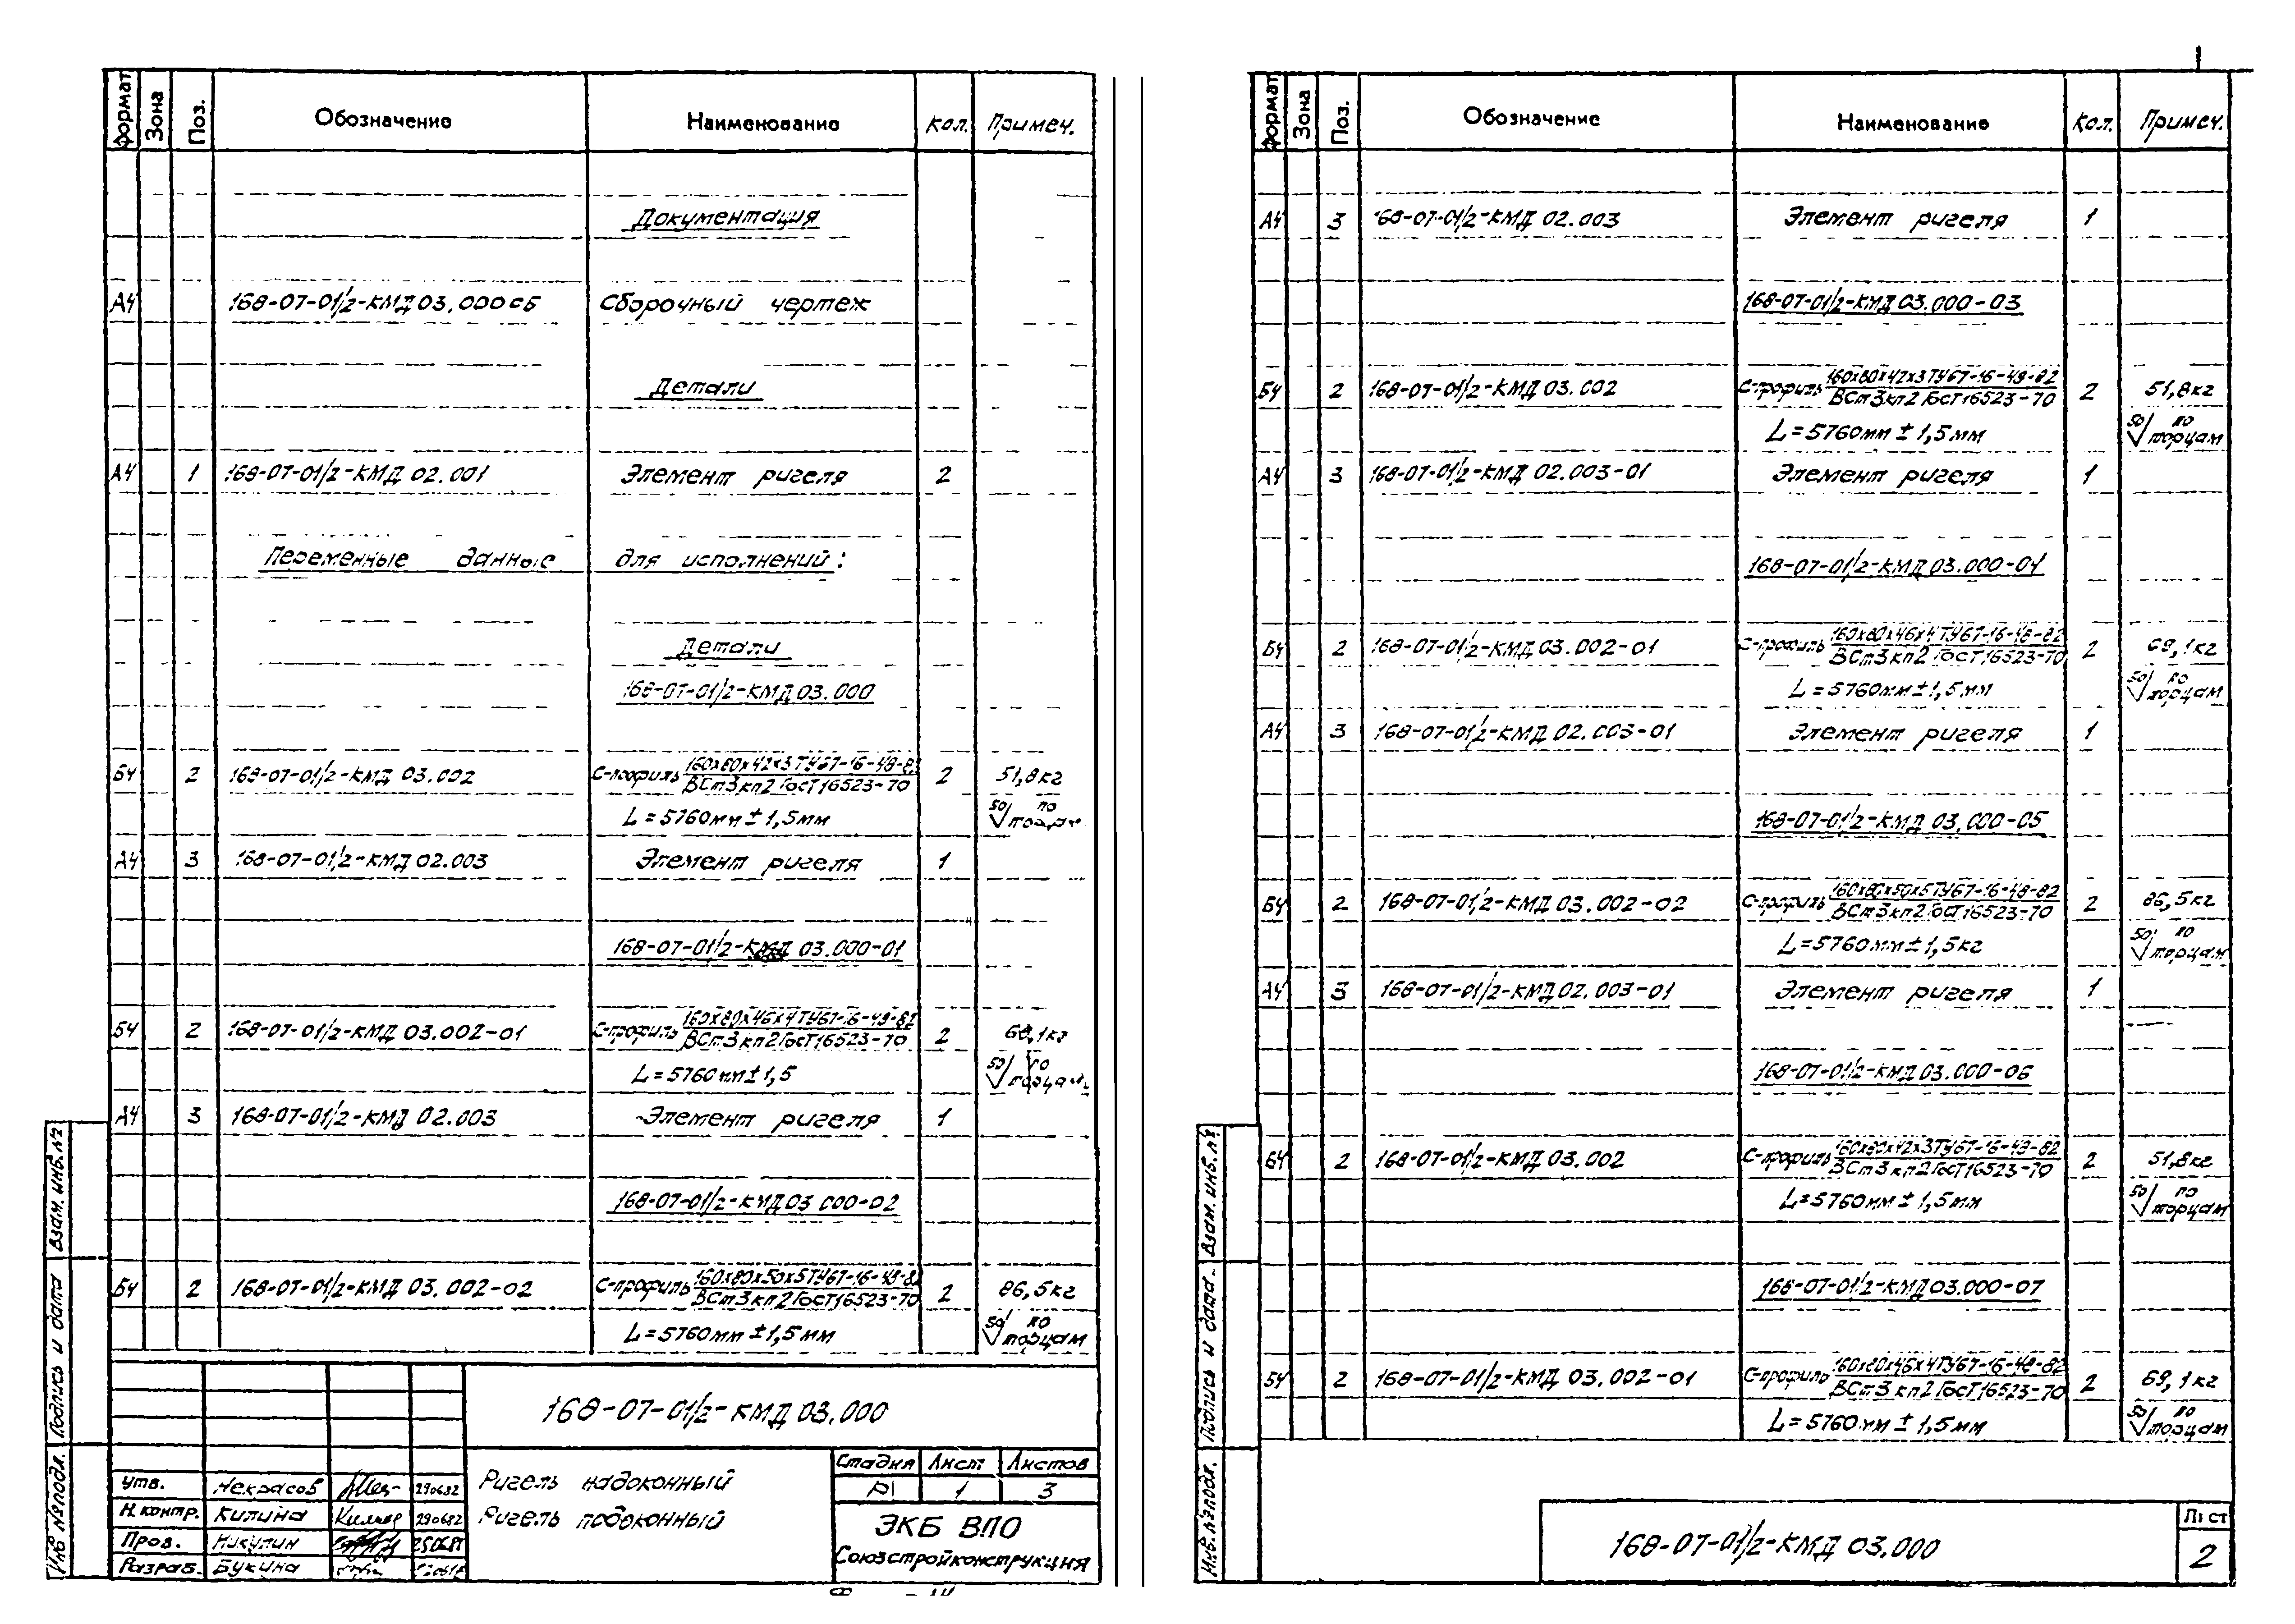 формат Зона Поз. Обозначение Наименование Кол. Примеч.
Документация
А4 168-07-01/2-КМД 03.000СБ Сборочный чертеж
Детали
А4 1 168-07-01/2-КМД 02.001 Элемент ригеля 2
Переменные данные для исполнений:
Детали
168-07-01/2-КМД 03.000
БЧ 2 168-07-01/2-КМД 03.002 С-профиль 160х80х42х3 ТУ67-16-48-82 2 51,8кг
ВСт3кп2 ГОСТ16523-70
L=5760мм ± 1,5мм 50 по
А4 3 168-07-01/2-КМД 02.003 Элемент ригеля 1
168-07-01/2-КМД 03.000-01
БЧ 2 168-07-01/2-КМД 03.002-01 С-профиль 160х80х46х4 ТУ67-16-48-82 2 69,1кг
ВСт3кп2 ГОСТ16523-70
L=5760мм ± 1,5 50 по торцам
А4 3 168-07-01/2-КМД 02.003 Элемент ригеля 1
168-07-01/2-КМД 03 000-02
БЧ 2 168-07-01/2-КМД 03.002-02 С-профиль 160х80х50х5 ТУ67-16-48-82 2 86,5кг
ВСт3кп2 ГОСТ16523-70
L=5760мм ± 1,5мм 50 по торцам
168-07-01/2-КМД 03.000
Ригель надоконный
Ригель подоконный
Стадия Лист Листов
Р 1 3
ЭКБ ВПО
Союзстройконструкция
Утв. Некрасов 290682
Н.контр. Килина 290682
Пров. Никулин
Разраб. Букина
Инв №подл. Подпись и дата Взам.инв.№
формат Зона Поз. Обозначение Наименование Кол. Примеч.
А4 3 168-07-01/2-КМД 02.003 Элемент ригеля 1
168-07-01/2-КМД 03.000-03
БЧ 2 168-07-01/2-КМД 03.002 С-профиль 160х80х42х3 ТУ67-16-48-82 2 51,8кг
ВСт3кп2 ГОСТ16523-70
L=5760мм ± 1,5мм 50 по торцам
А4 3 168-07-01/2-КМД 02.003-01 Элемент ригеля 1
168-07-01/2-КМД 03.000-04
БЧ 2 168-07-01/2-КМД 03.002-01 С-профиль 160х80х46х4 ТУ67-16-48-82 2 69,1кг
ВСт3кп2 ГОСТ16523-70
L=5760мм ± 1,5мм 50 по торцам
А4 3 168-07-01/2-КМД 02.003-01 Элемент ригеля 1
168-07-01/2-КМД 03.000-05
БЧ 2 168-07-01/2-КМД 03.002-02 С-профиль 160х80х50х5 ТУ67-16-48-82 2 86,5кг
ВСт3кп2 ГОСТ16523-70
L=5760мм ± 1,5кг 50 по торцам
А4 3 168-07-01/2-КМД 02.003-01 Элемент ригеля 1
168-07-01/2-КМД 03.000-06
БЧ 2 168-07-01/2-КМД 03.002 С-профиль 160х80х42х3 ТУ67-16-48-82 2 51,8кг
ВСт3кп2 ГОСТ16523-70
L=5760мм ± 1,5мм 50 по торцам
168-07-01/2-КМД 03.000-07
БЧ 2 168-07-01/2-КМД 03.002-01 С-профиль 160х80х46х4 ТУ67-16-48-82 2 69,1кг
ВСт3кп2 ГОСТ16523-70
L=5760мм ± 1,5мм 50 по торцам
168-07-01/2-КМД 03.000
Лист
2
Инв.№подл. Подпись и дата Взам.инв.№